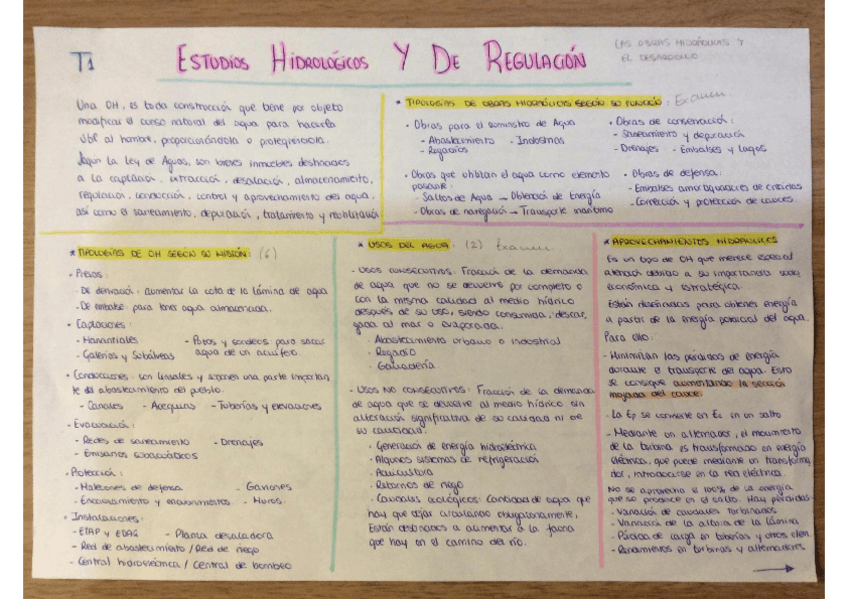 T1
ESTUDIOS HIDROLÓGICOS Y DE REGULACIÓN
LAS OBRAS HIDRÁULICAS Y
EL DESARROLLO
Una OH, es toda construcción que tiene por objeto
modificar el curso natural del agua para hacerla
útil al hombre, proporcionándola o protegiéndola.
Según la Ley de Aguas, son bienes inmuebles destinados
a la captación, extracción, desalación, almacenamiento,
regulación, conducción, control y aprovechamiento del agua,
así como el saneamiento, depuración, tratamiento y reutilización
* TIPOLOGÍAS DE OBRAS HIDRÁULICAS SEGÚN SU FUNCIÓN: Examen
• Obras para el suministro de Agua
- Abastecimiento - Industrias
- Regadíos
• Obras que utilizan el agua como elemento
potente:
- Saltos de Agua → Obtención de Energía
- Obras de navegación → Transporte marítimo
• Obras de conservación:
- Saneamiento y depuración
- Drenajes - Embalses y Lagos
• Obras de defensa:
- Embalses amortiguadores de crecidas
- Corrección y protección de cauces.
* TIPOLOGÍAS DE OH SEGÚN SU MISIÓN: (6)
• Presas:
- De derivación: aumentar la cota de la lámina de agua
- De embalse: para tener agua almacenada.
• Captaciones:
- Manantiales - Pozos y sondeos para sacar
- Galerías y Subálveas agua de un acuífero.
• Conducciones: son lineales y suponen una parte importan
te del abastecimiento del pueblo.
- Canales - Acequias - Tuberías y elevaciones
• Evacuación:
- Redes de saneamiento - Drenajes
- Emisarios subacuáticos
• Protección:
- Malecones de defensa - Gaviones
- Encauzamiento y encauzamientos - Muros.
• Instalaciones:
- ETAP y EDAR - Planta desaladora
- Red de abastecimiento / Red de riego
- Central hidroeléctrica / Central de bombeo
* USOS DEL AGUA: (2) Examen
- USOS CONSECUTIVOS: Fracción de la demanda
de agua que no se devuelve por completo o
con la misma calidad al medio hídrico
después de su uso, siendo consumida, descar,
gada al mar o evaporada.
• Abastecimiento urbano o industrial
• Regadío
• Ganadería
- USOS NO CONSECUTIVOS: Fracción de la demanda
de agua que se devuelve al medio hídrico sin
alteración significativa de su cantidad ni de
su calidad.
• Generación de energía hidroeléctrica
• Algunos sistemas de refrigeración
• Acuicultura
• Retornos de riego
• Caudales ecológicos: Cantidad de agua que
hay que dejar circulando obligatoriamente,
están destinados a alimentar a la fauna
que hay en el camino del río.
* APROVECHAMIENTOS HIDRÁULICOS
Es un tipo de OH que merece especial
atención debido a su importancia social,
económica y estratégica.
Están diseñados para obtener energía
a partir de la energía potencial del agua.
Para ello:
- Minimizan las pérdidas de energía
durante el transporte del agua. Esto
se consigue aumentando la sección
mojada del cauce.
- La Ep se convierte en Ec en un salto
- Mediante un alternador, el movimiento
de la turbina es transformado en energía
eléctrica, que puede mediante un transforma
dor, introducirse en la red eléctrica.
No se aprovecha el 100% de la energía
que se produce en el salto. Hay pérdidas:
- Variación de caudales turbinados
- Variación de la altura de la lámina
- Pérdida de carga en tuberías y otros elem
- Rendimientos en turbinas y alternadores